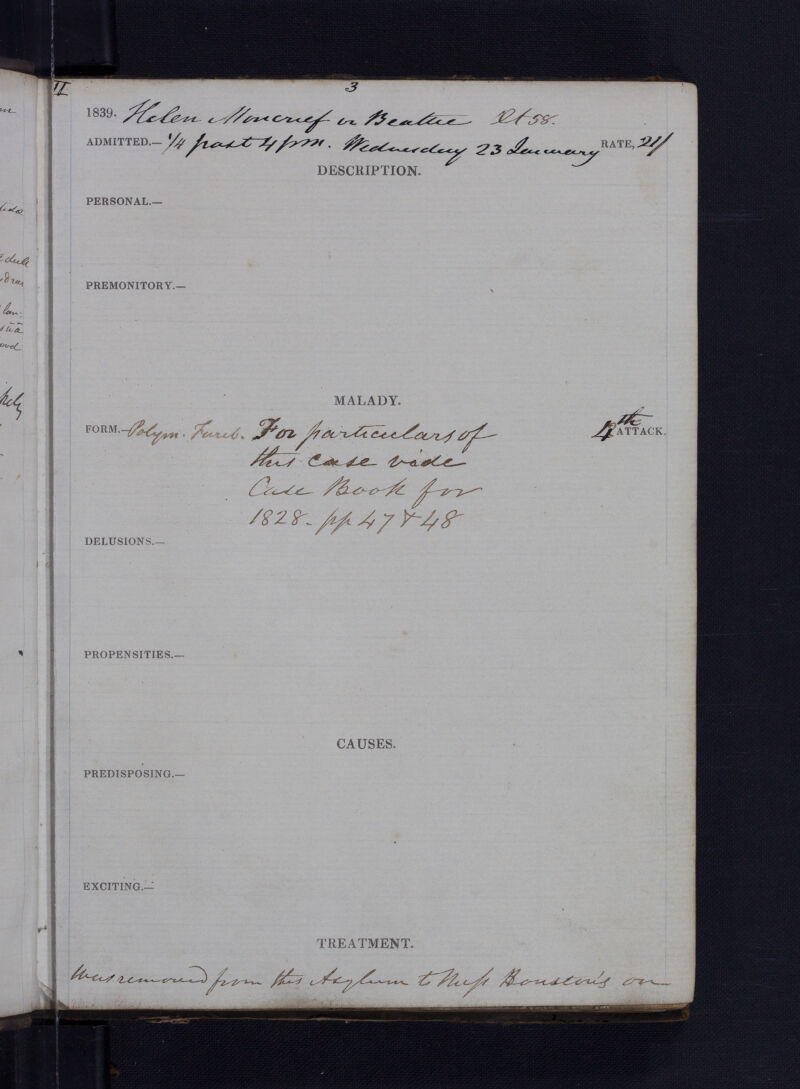 II
3
1839. Helen Moncrief or Beattie Æt 58.
ADMITTED.— 1/4 past 4 pm. Wednesday 23 January RATE, 21/
DESCRIPTION.
PERSONAL.—
PREMONITORY.—
MALADY.
FORM.— Polym. Furib. For particulars of 4th ATTACK.
this case vide
Case Book for
1828 - pp 47 & 48
DELUSIONS.—
PROPENSITIES.—
CAUSES.
PREDISPOSING.—
EXCITING.—
TREATMENT.
Was removed from this Asylum to Miss Houston's on